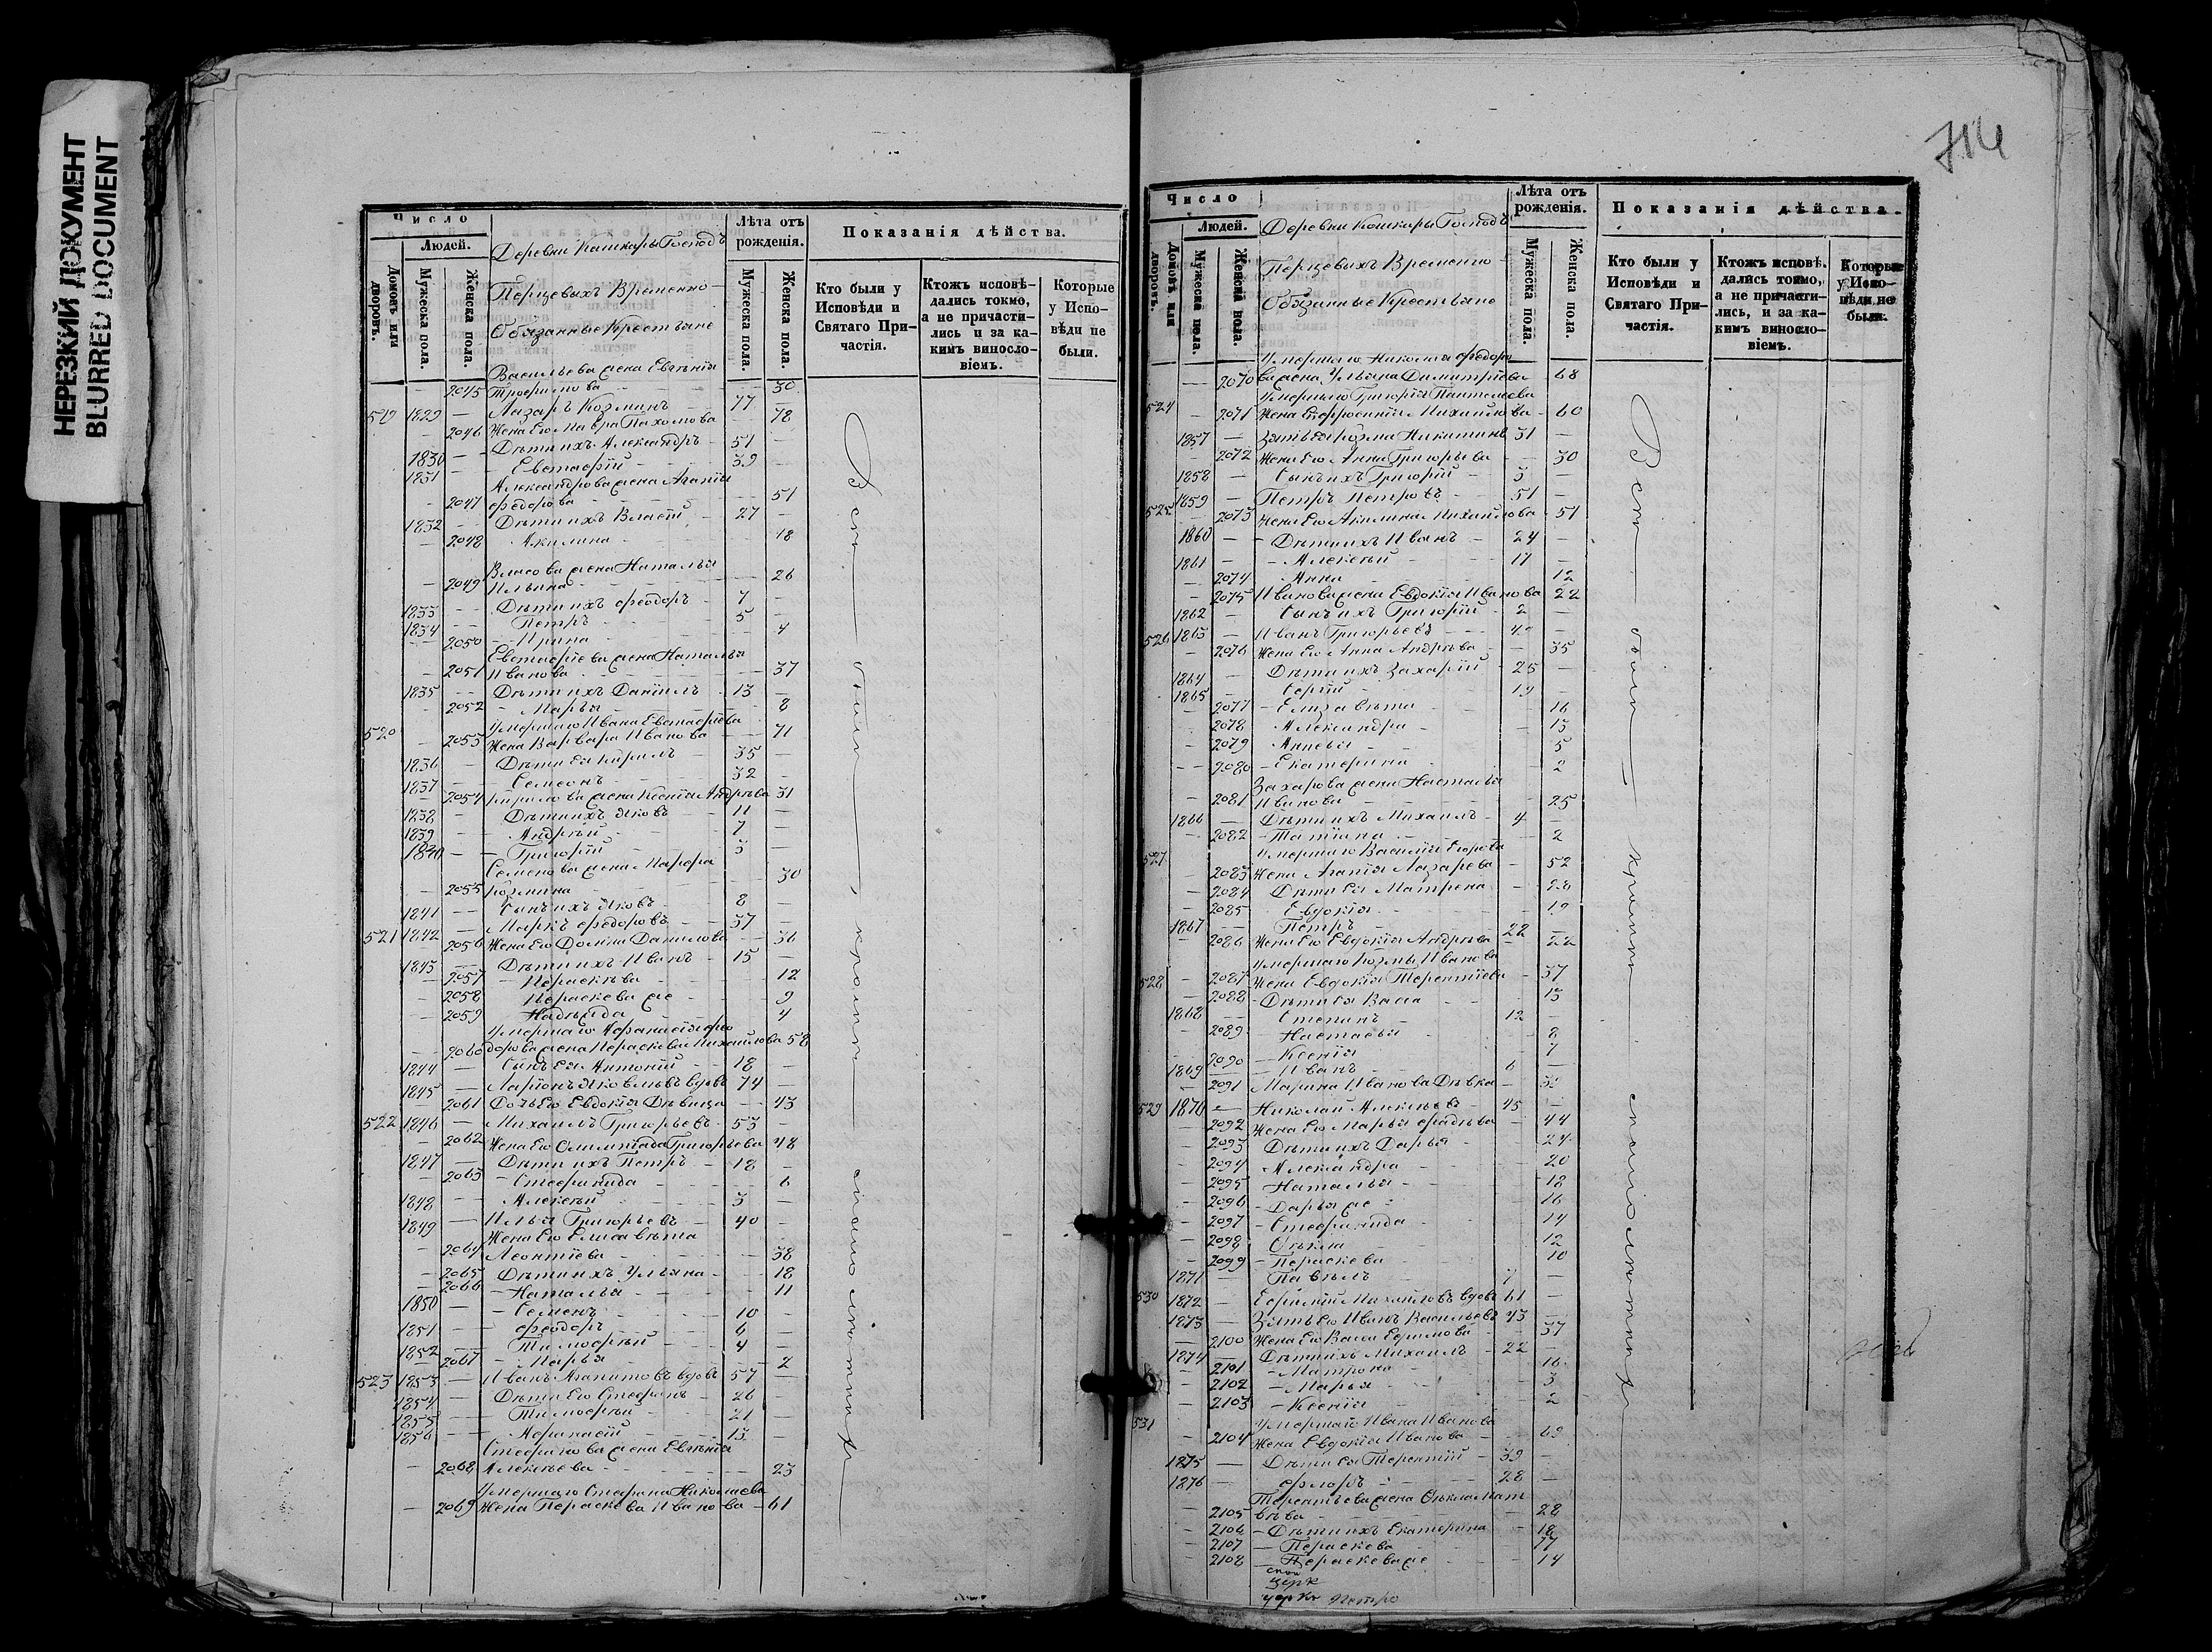 НЕРЕЗКИЙ ДОКУМЕНТ
BLURRED DOCUMENT
Число
Людей.
Домовъ или дворовъ.
Мужеска пола.
Женска пола.
Деревни Кошкары Господъ
Перцевыхъ Временно-
Обязанные Крестьяне
Лѣта отъ рожденія.
Мужеска пола.
Женска пола.
Показанія дѣйства.
Кто были у Исповѣди и Святаго Причастія.
Ктожъ исповѣдались токмо, а не причастились и за какимъ винословіемъ.
Которые у Исповѣди не были.
Васильева жена Евгенія
2045 Трофимова 30
519 1829 Лазарь Козминъ 77
2046 Жена Его Мавра Пахомова 78
1830 Дѣти ихъ Александръ 51
1831 Евстафій 39
Александрова жена Агапія
2047 Федорова 51
1832 Дѣти ихъ Власій 27
2048 Акилина 18
Власова жена Наталья
2049 Ильина 26
1833 Дѣти ихъ Феодоръ 7
1834 Петръ 5
2050 Ирина 4
Евстафіева жена Наталья
2051 Иванова 37
1835 Дѣти ихъ Даніилъ 13
2052 Марья 8
520 Умершаго Ивана Евстафіева
2053 Жена Варвара Иванова 71
1836 Дѣти Ея Кирилъ 35
1837 Семенъ 32
2054 Кирилова жена Ксенія Андрѣева 31
1838 Дѣти ихъ Яковъ 11
1839 Андрѣй 7
1840 Григорій 3
Семенова жена Марфа
2055 Козмина 30
1841 Сынъ ихъ Яковъ 8
521 1842 Маркъ Федоровъ 37
2056 Жена Его Домна Данилова 36
1843 Дѣти ихъ Иванъ 15
2057 Параскѣва 12
2058 Параскева же 9
2059 Надѣжда 4
Умершаго Афанасія Фео
2060 дорова жена Параскева Михайлова 58
1844 Сынъ Ея Антоній 18
1845 Ларіонъ Яковлевъ вдовъ 74
2061 Дочь Его Евдокія Дѣвица 43
522 1846 Михаилъ Григорьевъ 53
2062 Жена Его Олимпіада Григорьева 48
1847 Дѣти ихъ Петръ 18
2063 Стефанида 6
1848 Алексѣй 3
1849 Илья Григорьевъ 40
Жена Его Елисавѣта
2064 Леонтіева 38
2065 Дѣти ихъ Ульяна 18
2066 Наталья 11
1850 Семенъ 10
1851 Феодоръ 6
1852 Тимофѣй 4
2067 Марья 2
523 1853 Иванъ Агапитовъ вдовъ 57
1854 Дѣти Его Стефанъ 26
1855 Тимофѣй 21
1856 Афанасій 13
Стефанова жена Евгенія
2068 Алексѣева 23
Умершаго Стефана Николаева
2069 Жена Параскева Иванова 61
Всѣ были, кромѣ
714
Число
Людей.
Домовъ или дворовъ.
Мужеска пола.
Женска пола.
Деревни Кошкары Господъ
Перцевыхъ Временно-
Обязанные Крестьяне
Лѣта отъ рожденія.
Мужеска пола.
Женска пола.
Показанія дѣйства.
Кто были у Исповѣди и Святаго Причастія.
Ктожъ исповѣдались токмо, а не причастились, и за какимъ винословіемъ.
Которые у Исповѣди не были.
Умершаго Николая Федоро
2070 ва жена Ульяна Димитріева 68
524 Умершаго Григорія Пантелеева
2071 Жена Евфросинія Михайлова 60
1857 Зять Ея Козма Никитинъ 31
2072 Жена Его Анна Григорьева 30
1858 Сынъ ихъ Григорій 3
525 1859 Петръ Петровъ 51
2073 Жена Его Акилина Михайлова 51
1860 Дѣти ихъ Иванъ 24
1861 Алексѣй 17
2074 Анна 12
2075 Иванова жена Евдокія Иванова 22
1862 Сынъ ихъ Григорій 2
526 1863 Иванъ Григорьевъ
2076 Жена Его Анна Андрѣева 35
1864 Дѣти ихъ Захарій 25
1865 Сергій 19
2077 Елизавѣта 16
2078 Александра 13
2079 Анисья 5
2080 Екатерина 2
Захарова жена Настасья
2081 Иванова 25
1866 Дѣти ихъ Михаилъ 4
2082 Татіана 2
527 Умершаго Василія Егорова
2083 Жена Агапія Лазарева 52
2084 Дѣти Ея Матрена 28
2085 Евдокія
1867 Петръ 22
2086 Жена Его Евдокія Андрѣева 22
528 Умершаго Козмы Иванова
2087 Жена Евдокія Терентіева 37
2088 Дѣти Ея Васса 13
1868 Степанъ 12
2089 Настасья 8
2090 Ксенія 7
1869 Иванъ 6
2091 Марина Иванова Дѣвка
529 1870 Николай Алексѣевъ 45
2092 Жена Его Марья Фадѣева 44
2093 Дѣти ихъ Дарья 24
2094 Александра 20
2095 Наталья 18
2096 Дарья же 16
2097 Стефанида 14
2098 Ѳекла 12
2099 Параскева 10
1871 Павелъ 7
530 1872 Ефимій Михайловъ вдовъ 61
1873 Зять Его Иванъ Васильевъ 43
2100 Жена Его Васса Ефимова 37
1874 Дѣти ихъ Михаилъ 22
2101 Матрона 16
2102 Марья 3
2103 Ксенія 2
531 Умершаго Ивана Иванова
2104 Жена Евдокія Иванова 69
1875 Дѣти Ея Терентій 39
1876 Флоръ 28
Терентьева жена Ѳекла Мат
2105 вѣева 28
2106 Дѣти ихъ Екатерина 18
2107 Параскева 17
2108 Параскева же 14
Всѣ были, кромѣ